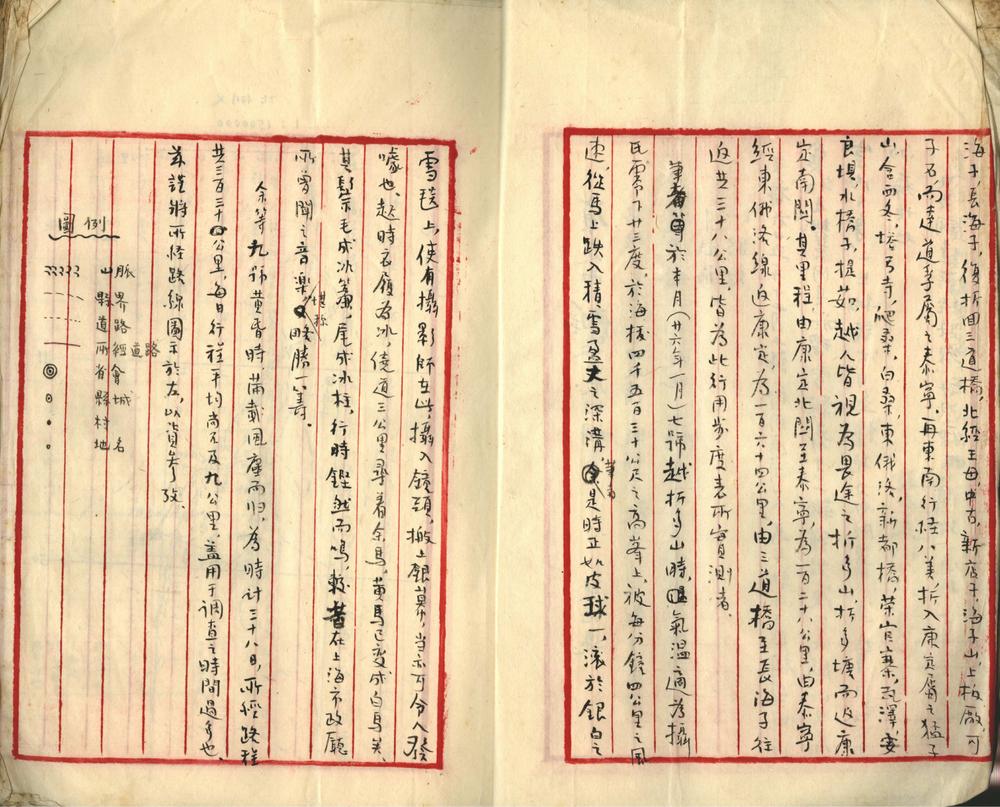 海子長海子，復折回三道橋，北經王母，中古，新店子，海子山，上板廠，可
子石而達道孚屬之泰寧，再東南行經八美，折入康定屬之猛子
山，倉西冬，塔弓寺，爬桑，白桑，東俄洛，新都橋，榮官寨，瓦澤，安
良壩，水橋子，提茹，越人皆視為畏途之折多山，折多塘而返康
定南關。其里程，由康定北關至泰寧，為一百二十八公里，由泰寧
經東俄洛線返康定，為一百六十四公里，由三道橋至長海子往
返共三十八公里，皆為此行用步度表所實測者。
筆者於本月（廿六年一月）七號越折多山時，氣溫適為攝
氏零下廿三度，於海拔四千五百三十公尺之高峯上，被每分鐘四公里之風
速，從馬上跌入積雪盈丈之深溝，筆者是時正如皮球一，滾於銀白之
雪毯上，使有攝影師在此攝入鏡頭，搬上銀幕，當亦可令人發
噱也。越時衣履為冰，繞道三公里尋着余馬，黃馬已變成白馬矣，
其鬃毛成冰簾，尾成冰柱，行時鏗然而鳴，較昔在上海市政廳
所曾聞之音樂，堪稱勝一籌。
余等九號黃昏時滿載風塵而归，為時計三十八日，所經路程
共三百三十公里，每日行程平均尚不及九公里，蓋用于調查之時間過多也。
茲謹將所經路線圖示於左，以資參攷。
圖例
山脈
縣界
道路
所經道路
省會
縣城
村
地名